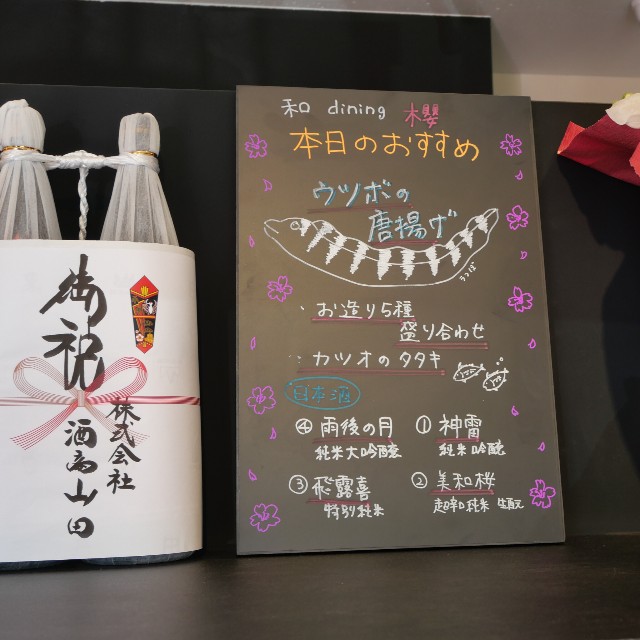 和 dining 櫻
本日のおすすめ
ウツボの
唐揚げ
うつぼ
お造り5種
盛り合わせ
カツオのタタキ
日本酒
④ 雨後の月
純米大吟醸
① 神雷
純米吟醸
③ 飛露喜
特別純米
② 美和桜
超辛口純米 生酛
御祝
株式会社
酒商山田